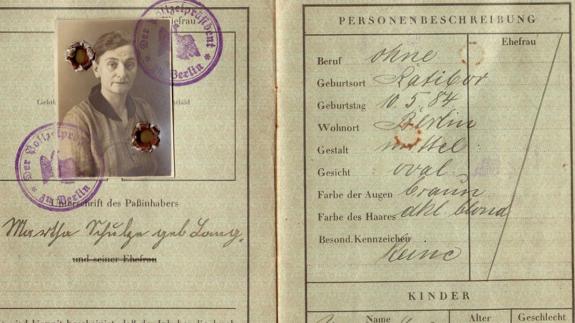 Ehefrau
Der Polizeipräsident
in Berlin
Der Polizeipräsident
in Berlin
Unterschrift des Paßinhabers
Martha Schulze geb Lang.
und seiner Ehefrau
PERSONENBESCHREIBUNG
Ehefrau
Beruf ohne
Geburtsort Ratibor
Geburtstag 10.5.84
Wohnort Berlin
Gestalt mittel
Gesicht oval
Farbe der Augen braun
Farbe des Haares dkl. blond
Besond. Kennzeichen
Keine
KINDER
Name Alter Geschlecht